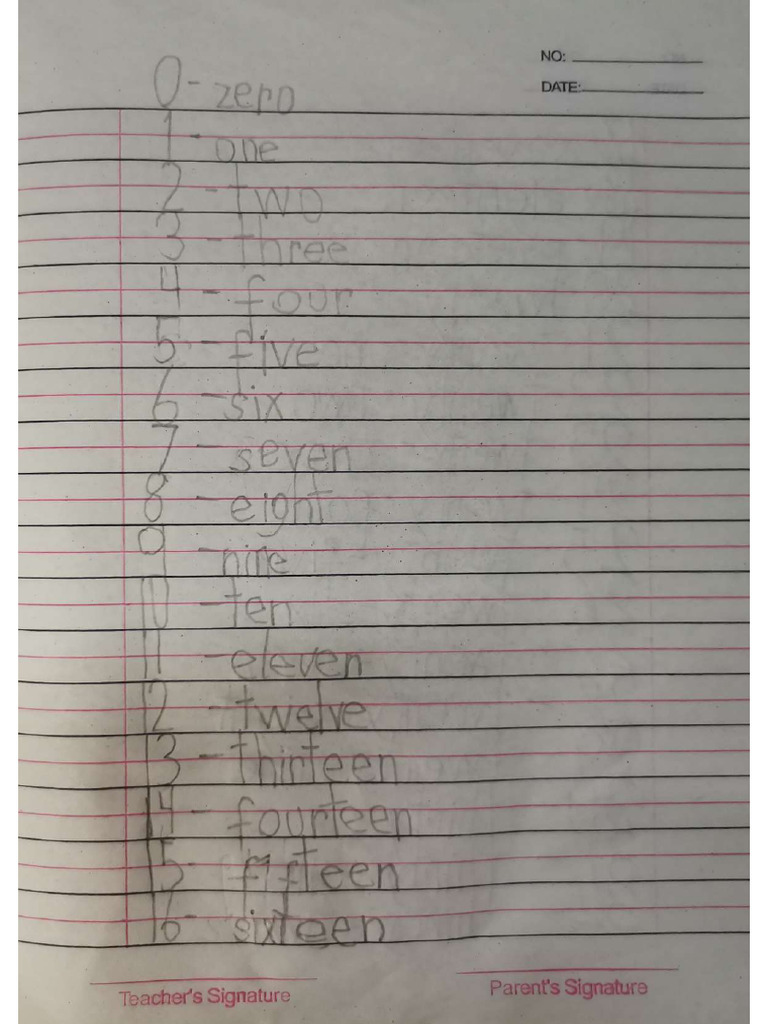 NO:
DATE:
0 - zero
1 - one
2 - two
3 - three
4 - four
5 - five
6 - six
7 - seven
8 - eight
9 - nine
10 - ten
11 - eleven
12 - twelve
13 - thirteen
14 - fourteen
15 - fifteen
16 - sixteen
Teacher's Signature
Parent's Signature